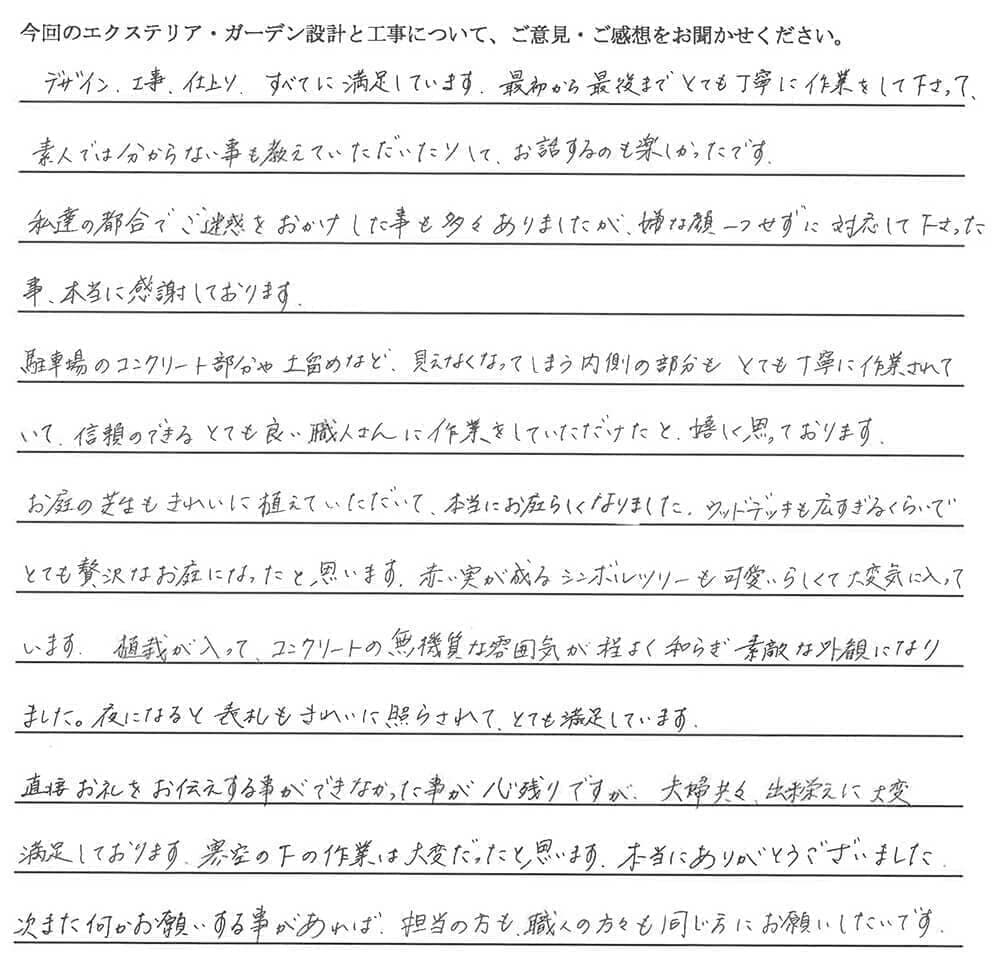 今回のエクステリア・ガーデン設計と工事について、ご意見・ご感想をお聞かせください。
デザイン、工事、仕上り、すべてに満足しています。最初から最後までとても丁寧に作業をして下さって、
素人では分からない事も教えていただいたりして、お話するのも楽しかったです。
私達の都合でご迷惑をおかけした事も多々ありましたが、嫌な顔一つせずに対応して下さった
事、本当に感謝しております。
駐車場のコンクリート部分や土留めなど、見えなくなってしまう内側の部分もとても丁寧に作業されて
いて、信頼のできるとても良い職人さんに作業をしていただけたと、嬉しく思っております。
お庭の芝生もきれいに植えていただいて、本当にお庭らしくなりました。ウッドデッキも広すぎるくらいで
とても贅沢なお庭になったと思います。赤い実が成るシンボルツリーも可愛いらしくて大変気に入って
います。 植栽が入って、コンクリートの無機質な雰囲気が程よく和らぎ素敵な外観になり
ました。夜になると表札もきれいに照らされて、とても満足しています。
直接お礼をお伝えする事ができなかった事が心残りですが、夫婦共々、出来栄えに大変
満足しております。寒空の下の作業は大変だったと思います。本当にありがとうございました。
次また何かお願いする事があれば、担当の方も、職人の方々も同じ方にお願いしたいです。